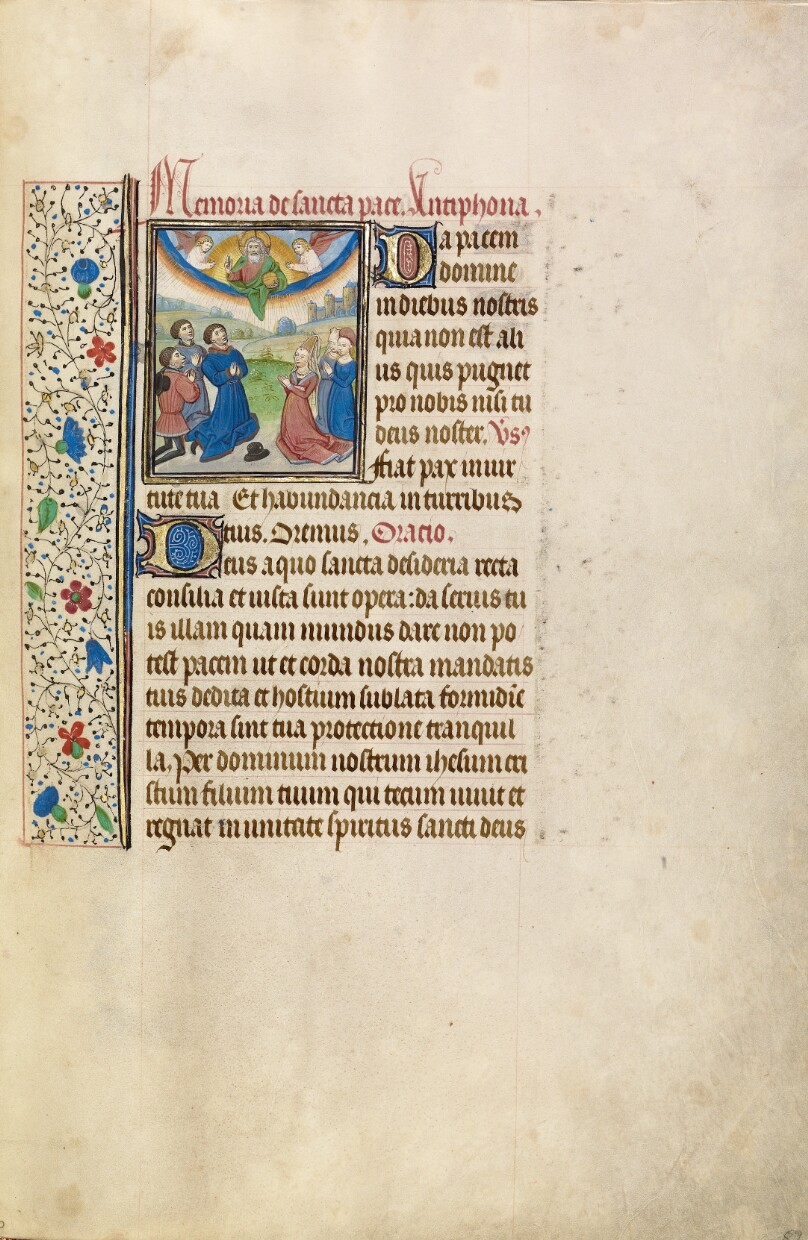 Memoria de sancta pace. Antiphona.
Da pacem
domine
in diebus nostris
quia non est ali
us quis pugnet
pro nobis nisi tu
deus noster. Vs
Fiat pax in uir
tute tua Et habundancia in turribus
tuis. Oremus. Oracio.
Deus a quo sancta desideria recta
consilia et iusta sunt opera: da seruis tu
is illam quam mundus dare non po
test pacem ut et corda nostra mandatis
tuis dedita et hostium sublata formidie
tempora sint tua protectione tranquil
la. Per dominum nostrum ihesum cri
stum filium tuum qui tecum uiuit et
regnat in unitate spiritus sancti deus